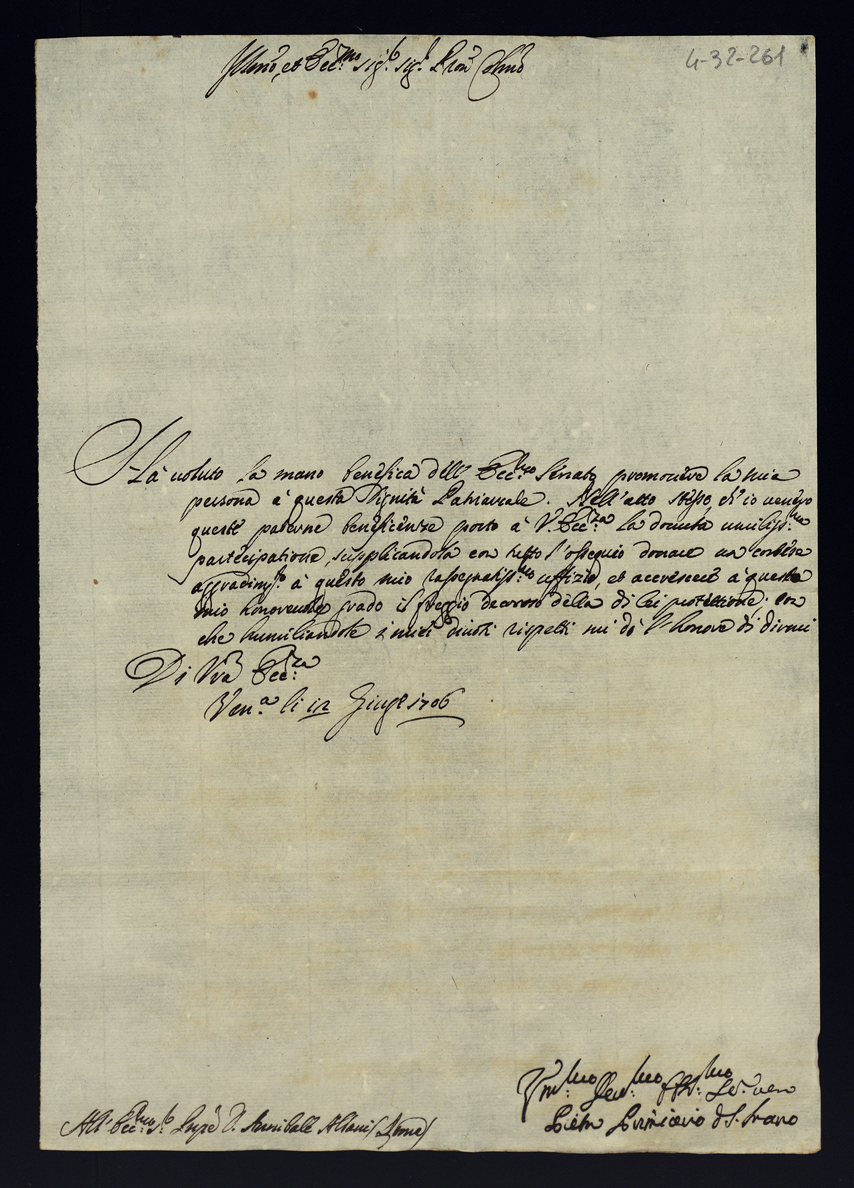 Illmo, et Ecc.mo Sig.r Sig.r Pron Colmo
4-32-261
Hà voluto la mano benefica dell' Ecc.mo Senato promovere la mia
persona à questa Dignità Patriarcale. Nell'atto stesso, ch'io venero
queste paterne beneficenze porto à V. Ecc.za la dovuta umiliss.ma
partecipatione, supplicandola con tutto l'ossequio donare un cortese
aggradim.to à questo mio rassegnatiss.mo uffizio, et accrescere à questo
mio honorevole grado il freggio decoroso della di lei protettione; con
che humiliandole i miei divoti rispetti mi dò l'honore di dirmi
Di Vra Ecc.za
Ven.a li 12 Giug.o 1706
Vm.mo Dev.mo Obl.mo Ser. vero
Pietro Primicerio di S. Marco
All' Ecc.mo S.r Prñpe D. Annibale Albani (Roma)